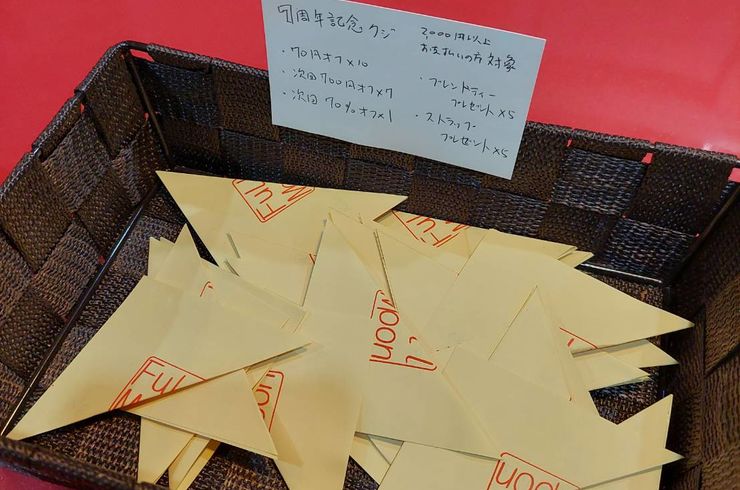 7周年記念クジ
・70円オフ×10
・次回700円オフ×7
・次回70%オフ×1
2,000円以上
お支払いの方対象
・ブレンドティー
プレゼント×5
・ストラップ
プレゼント×5
Fu
Moon